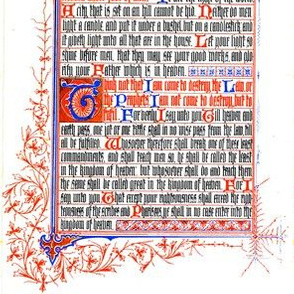 city that is set on an hill cannot be hid. Neither do men
light a candle, and put it under a bushel, but on a candlestick; and
it giveth light unto all that are in the house. Let your light so
shine before men, that they may see your good works, and glo
rify your Father which is in heaven.
Think not that I am come to destroy the Law, or
the Prophets: I am not come to destroy, but to
fulfil. For verily I say unto you, Till heaven and
earth pass, one jot or one tittle shall in no wise pass from the law, till
all be fulfilled. Whosoever therefore shall break one of these least
commandments, and shall teach men so, he shall be called the least
in the kingdom of heaven: but whosoever shall do and teach them
the same shall be called great in the kingdom of heaven. For I
say unto you That except your righteousness shall exceed the righ
teousness of the scribes and Pharisees, ye shall in no case enter into the
kingdom of heaven.